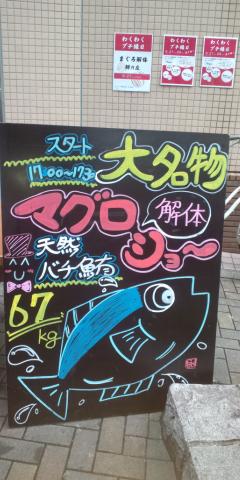 わくわく
プチ縁日
まぐろ解体
わくわく
プチ縁日
わくわく
プチ縁日
スタート
17:00~17:30
大名物
マグロ
解体
ショー
天然
バチ鮪
67
kg